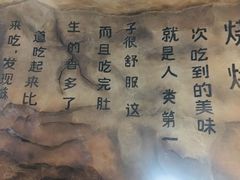 来吃，发现味
道吃起来比
生的香多了
而且吃完肚
子很舒服 这
就是人类第一
次吃到的美味
烧